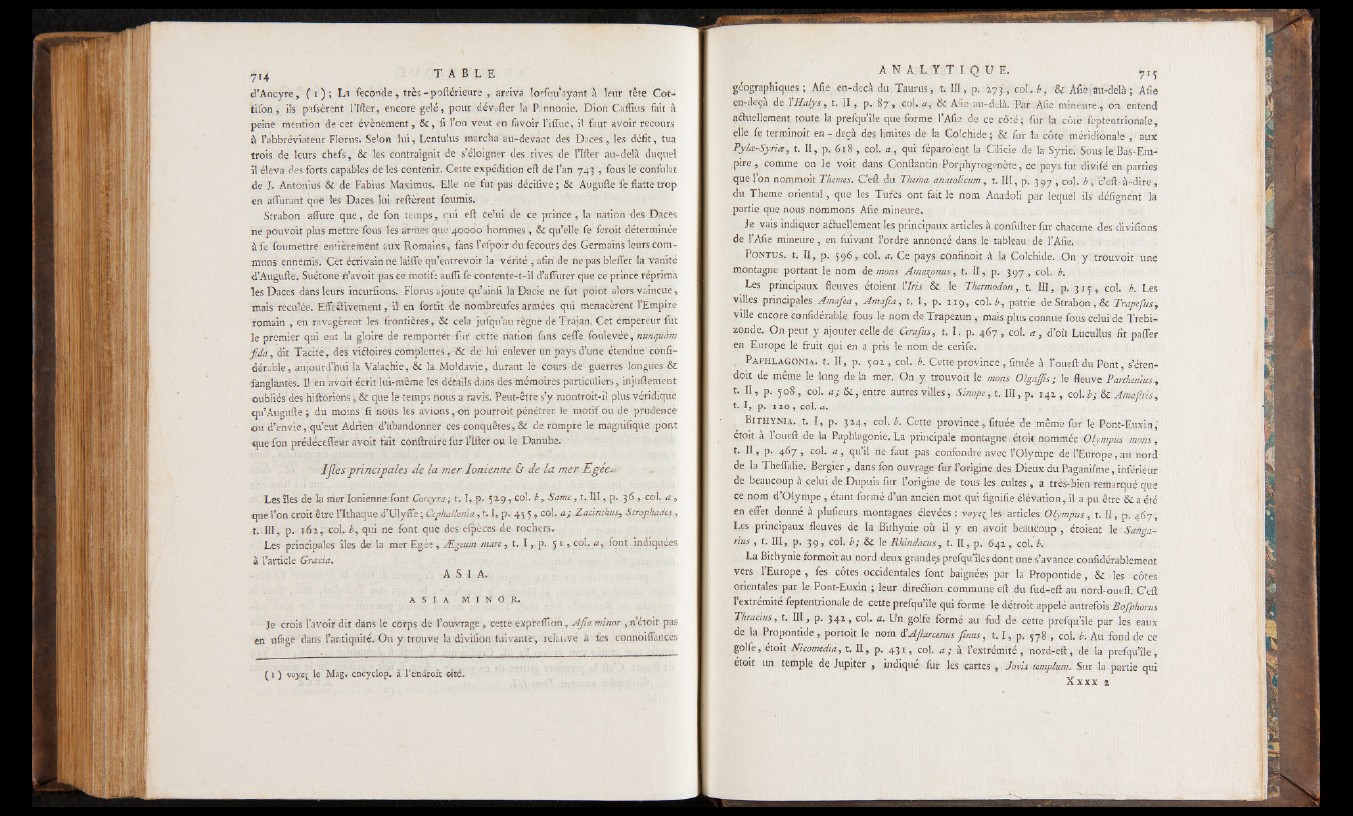 714 TABLE
d'Ancyre, (1); La seconde, très-postérieure, arriva lorsqu'ayant à leur tête Cot-
tison, ils passèrent l'Ister, encore gelé, pour dévaster la Pannonie. Dion Cassius fait à
peine mention de cet évènement, &, si l'on veut en savoir l'issue, il faut avoir recours
à l'abbréviateur Florus. Selon lui, Lentulus marcha au-devant des Daces, les défit, tua
trois de leurs chefs, & les contraignit de s'éloigner des rives de l'Ister au-delà duquel
il éleva des forts capables de les contenir. Cette expédition est de l'an 743, sous le consulat
de J. Antonius & de Fabius Maximus. Elle ne fut pas décisive; & Auguste se flatte trop
en assurant que les Daces lui restèrent soumis.
Strabon assure que, de son temps, qui est celui de ce prince, la nation des Daces
ne pouvoit plus mettre sous les armes que 40000 hommes, & qu'elle se seroit déterminée
à se soumettre entièrement aux Romains, sans l'espoir du secours des Germains leurs com-
muns ennemis. Cet écrivain ne laisse qu'entrevoir la vérité, afin de ne pas blesser la vanité
d'Auguste. Suétone n'avoit pas ce motif: aussi se contente-t-il d'assurer que ce prince réprima
les Daces dans leurs incursions. Florus ajoute qu'ainsi la Dacie ne fut point alors vaincue,
mais reculée. Effectivement, il en sortit de nombreuses armées qui menacèrent l'Empire
romain, en ravagèrent les frontières, & cela jusqu'au règne de Trajan. Cet empereur fut
le premier qui eut la gloire de remporter sur cette nation sans cesse soulevée, nunquàm
fida, dit Tacite, des victoires complettes, & de lui enlever un pays d'une étendue consi-
dérable, aujourd'hui la Valachie, & la Moldavie, durant le cours de guerres longues &
sanglantes. Il en avoit écrit lui-même les détails dans des mémoires particuliers, injustement
oubliés des historiens, & que le temps nous a ravis. Peut-être s'y montroit-il plus véridique
qu'Auguste; du moins si nous les avions, on pourroit pénétrer le motif ou de prudence
ou d'envie, qu'eut Adrien d'abandonner ces conquêtes, & de rompre le magnifique pont
que son prédécesseur avoit fait construire sur l'Ister ou le Danube.
Isles principales de la mer Ionienne & de la mer Egée.
Les îles de la mer Ionienne sont Corcyra; t. I, p. 529, col. b, Same, t. III, p. 36, col. a,
que l'on croit être l'Ithaque d'Ulysse; Cephallenia, t. I, p. 435, col. a; Zacinthus, Strophades,
t. III, p. 162, col. b, qui ne sont que des espèces de rochers.
Les principales îles de la mer Egée, Ægeum mare, t. I, p. 51, col. a, sont indiquées
à l'article Græcia.
ASIA.
ASIA MINOR.
Je crois l'avoir dit dans le corps de l'ouvrage, cette expression, Asia minor, n'étoit pas
en usage dans l'antiquité. On y trouve la division suivante, relative à ses connoissances
(1) voyez le Mag. encyclop. à l'endroit cité.
ANALYTIQUE. 715
géographiques; Asie en-deçà du Taurus, t. III, p. 273, col. b, & Asie au-delà; Asie
en-deçà de l'Halys, t. II, p. 87, col. a, & Asie au-delà. Par Asie mineure, on entend
actuellement toute la presqu'île que forme l'Asie de ce côté; sur la côte septentrionale,
elle se terminoit en-deçà des limites de la Colchide; & sur la côte méridionale, aux
Pylæ-Syriæ, t. II, p. 618, col. a, qui séparoient la Cilicie de la Syrie. Sous le Bas-Em-
pire, comme on le voit dans Constantin Porphyrogenète, ce pays fut divisé en parties
que l'on nommoit Themes. C'est du Thema anatolicum, t. III, p. 397, col. b, c'est-à-dire,
du Theme oriental, que les Turcs ont fait le nom Anadoli par lequel ils désignent la
partie que nous nommons Asie mineure.
Je vais indiquer actuellement les principaux articles à consulter sur chacune des divisions
de l'Asie mineure, en suivant l'ordre annoncé dans le tableau de l'Asie.
PONTUS. t. II, p. 596, col. a. Ce pays confinoit à la Colchide. On y trouvoit une
montagne portant le nom de mons Amazonus, t. II, p. 397, col. b.
Les principaux fleuves étoient l'Iris & le Thermodon, t. III, p. 315, col. b. Les
villes principales Amasea, Amasia, t. I, p. 129, col. b, patrie de Strabon, & Trapesus,
ville encore considérable sous le nom de Trapezun, mais plus connue sous celui de Trebi-
zonde. On peut y ajouter celle de Cerasus, t. I. p. 467, col. a, d'où Lucullus fit passer
en Europe le fruit qui en a pris le nom de cerise.
PAPHLAGONIA. t. II, p. 502, col. b. Cette province, située à l'ouest du Pont, s'éten-
doit de même le long de la mer. On y trouvoit le mons Olgassis; le fleuve Parthenius,
t. II, p. 508, col. a; &, entre autres villes, Sinope, t. III, p. 142, col. b; & Amastris,
t. I, p. 120, col. a.
BITHYNIA. t. I, p. 324, col. b. Cette province, située de même sur le Pont-Euxin,
étoit à l'ouest de la Paphlagonie. La principale montagne étoit nommée Olympus mons,
t. II, p. 467, col. a, qu'il ne faut pas confondre avec l'Olympe de l'Europe, au nord
de la Thessalie. Bergier, dans son ouvrage sur l'origine des Dieux du Paganisme, inférieur
de beaucoup à celui de Dupuis sur l'origine de tous les cultes, a très-bien remarqué que
ce nom d'Olympe, étant formé d'un ancien mot qui signifie élévation, il a pu être & a été
en effet donné à plusieurs montagnes élevées: voyez les articles Olympus, t. II, p. 467,
Les principaux fleuves de la Bithynie où il y en avoit beaucoup, étoient le Sanga-
rius, t. III, p. 39, col. b; & le Rhindacus, t. II, p. 642, col. b.
La Bithynie formoit au nord deux grandes presqu'îles dont une s'avance considérablement
vers l'Europe, ses côtes occidentales sont baignées par la Propontide, & les côtes
orientales par le Pont-Euxin; leur direction commune est du sud-est au nord-ouest. C'est
l'extrémité septentrionale de cette presqu'île qui forme le détroit appelé autrefois Bosphorus
Thracius, t. III, p. 342, col. a. Un golfe formé au sud de cette presqu'île par les eaux
de la Propontide, portoit le nom d'Astacenus sinus, t. I, p. 578, col. b. Au fond de ce
golfe, étoit Nicomedia, t. II, p. 431, col. a; à l'extrémité, nord-est, de la presqu'île,
étoit un temple de Jupiter, indiqué sur les cartes, Jovis templum. Sur la partie qui
Xxxx 2